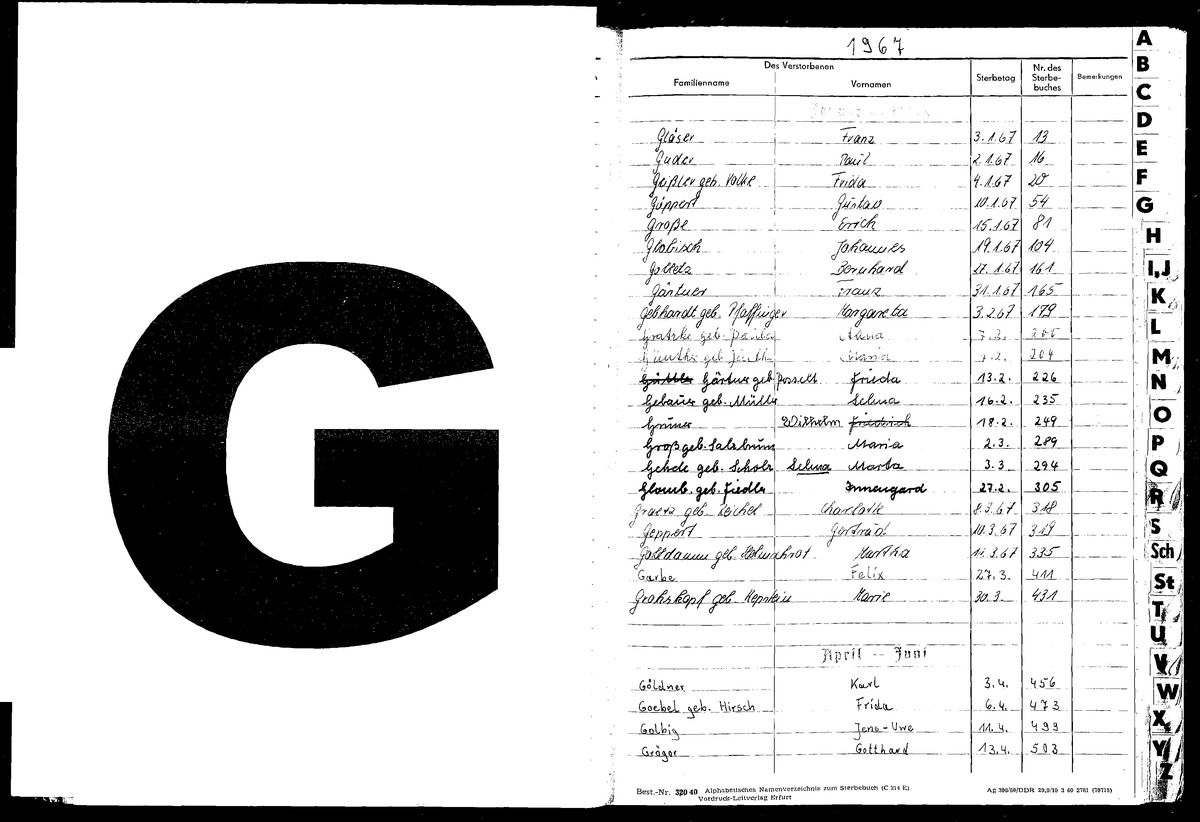 G
1967
Des Verstorbenen
Familienname Vornamen Sterbetag Nr. des Sterbe-buches Bemerkungen
Gläser Franz 3.1.67 13
Guder Paul 2.1.67 16
Geißler geb. Nolte Frida 4.1.67 20
Göppert Gustav 10.1.67 54
Große Erich 15.1.67 81
Globisch Johannes 19.1.67 104
Bernhard 27.1.67 161
Gärtner Franz 31.1.67 165
Gebhardt geb. Margareta 3.2.67 179
Gratzke geb. Anna 7.2.
Günther geb. Maria 7.2. 204
Gärtner geb. Posselt Frieda 13.2. 226
Gebauer geb. Müller Selma 16.2. 235
Gruner Wilhelm Friedrich 18.2. 249
Groß geb. Salzbrunn Maria 2.3. 289
Gehde geb. Scholz Selma Marta 3.3. 294
Glomb. geb. Fiedler Irmengard 27.2. 305
Graetz geb. Reichel Charlotte 8.3.67 318
Geppert Gertrud 10.3.67 319
geb. Martha 11.3.67 335
Garbe Felix 27.3. 411
Grohskopf geb. Marie 30.3. 431
April – Juni
Göldner Karl 3.4. 456
Goebel geb. Hirsch Frida 6.4. 473
Golbig Jens-Uwe 11.4. 499
Grögor Gotthard 13.4. 503
Best.-Nr. 320 40 Alphabetisches Namenverzeichnis zum Sterbebuch (C 214 E)
Vordruck-Leitverlag Erfurt
A
B
C
D
E
F
G
H
I,J
K
L
M
N
O
P
Q
R
S
Sch
St
T
U
V
W
X
Y
Z